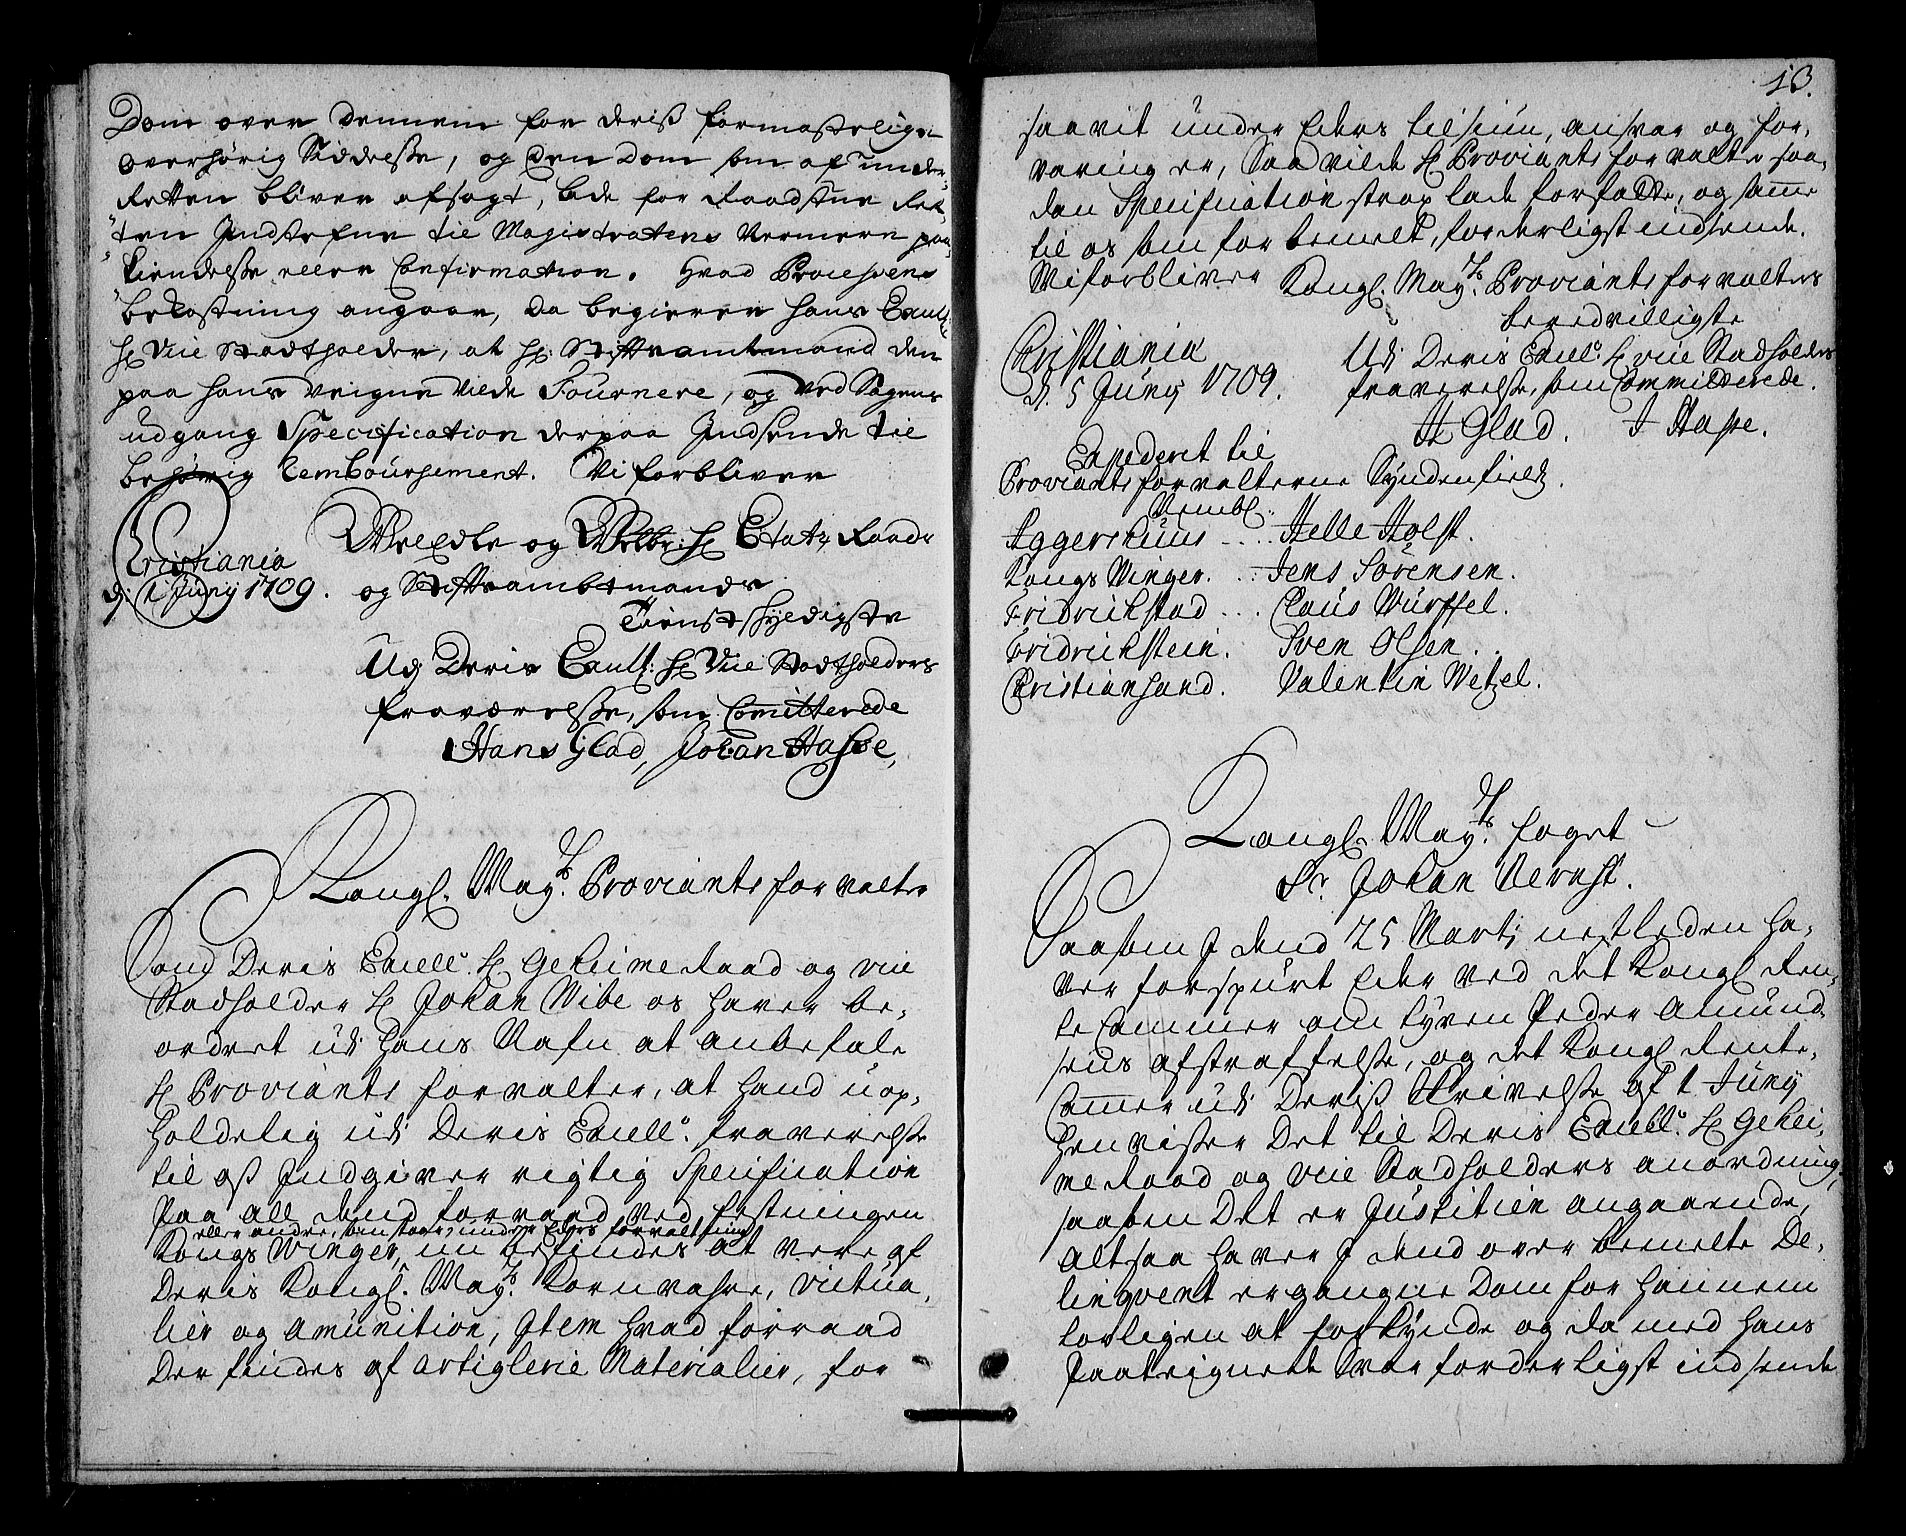 Dom over dennem for deriß formastelige
overhørig Siddelse, og den Dom som af under
Retten bliver afsagt, lade for Raadstue Ret-
ten Indstefne til Magistratens nermere paa
kiendelse eller Confirmation. Hvad Processens
bekostning angaar, da begierer hans Excell:
H Vice Stadtholder, at H: Stiftsamtmand den
paa hans veigne vilde Fournere, og ved Sagens
udgang Specification derpaa Indsende til
behørig Remboursement. Vi forbliver
Velædle og Welbr: H Etatz Raads
og Stiftsambtmands
Christiania
d: 1 Junij 1709.
Tienstskyldigste
Udj Deris Excell: H Vice Stadtholders
fraværelse, som Comitterede
Hans Glad, Johan Hasse,
Kongl. May.ts Proviantsforvalter
Som Deris Excell.s H Geheime Raad og Vice
Stadholder H Johan Wibe os haver be-
ordret udj hans Nafn at anbefale
H Proviants forvalter, at hand uop-
holdelig udj Deris Excell.s fraverelse
til oß Indgiver rigtig Specification
Paa all dend forraad ved festningen
eller andre, som staar under Eders forvaltning
Kongs Winger, nu befindes at vere af
Deris Kongl. May.ts Kornvahre, victua-
lier og Amunition, Item hvad forraad
der findes af Artiglerie Materialier, for
13.
saavit under Eders tilsiun, ansvar og for-
varing er, Saa vilde H Proviants forvalter saa-
dan Specification strax lade forfatte, og samme
til os som forbemelt, forderligst indsende.
Wi forbliver Kongl. May.ts Proviants forvalters
beredvilligste
Christiania
d. 5 Junij 1709.
Udj Deris Excell.s H vice Stadholders
fraverelse, som Committerede.
H Glad. J Hasse.
Expederet til
Proviantsforvalterne Syndenfields.
Nembl.
Aggershuus .... Helle Holst.
Kongs Winger. .. Jens Sørensen.
Fridrichstad ... Claus Würffel.
Fridrichstein. Sven Olsen ..
Christiansand. Valentin Wetzel.
Kongl. May.ts foget
Sr. Johan Vernst.
Saasom I dend 25 Martj nestleden ha-
ver forspurt Eder ved det Kongl Ren-
te Cammer om tyven Peder Amund-
sens afstraffelse, og det Kongl Rente-
Cammer udj Deriß Skrivelse af 1 Junij
henvisser det til Deris Excell.s H Gehei-
me Raad og vice Stadholders anordning,
saasom det er Justitien angaaende,
Altsaa haver I dend over bemelte De-
linqvent ergangne Dom for hannem
lovligen at forkynde og da med hans
Paateignede Svar forderligst indsende